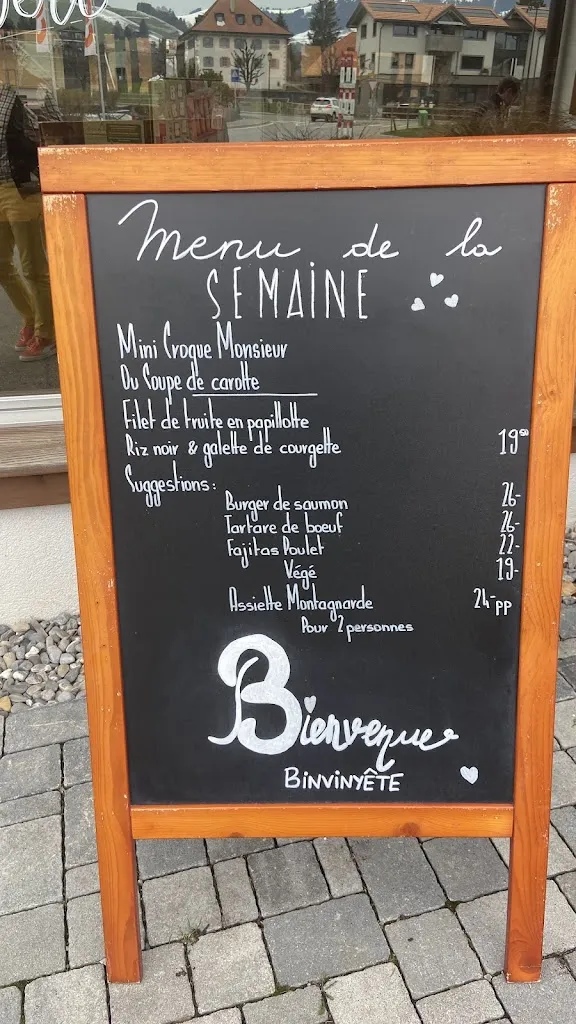 Menu de la
SEMAINE
Mini Croque Monsieur
Ou Coupe de carotte
Filet de truite en papillotte
Riz noir & galette de courgette 19⁵⁰
Suggestions:
Burger de saumon 26.-
Tartare de boeuf 26.-
Fajitas Poulet 22.-
Végé 19.-
Assiette Montagnarde 24.- pp
Pour 2 personnes
Bienvenue
BINVINYÊTE